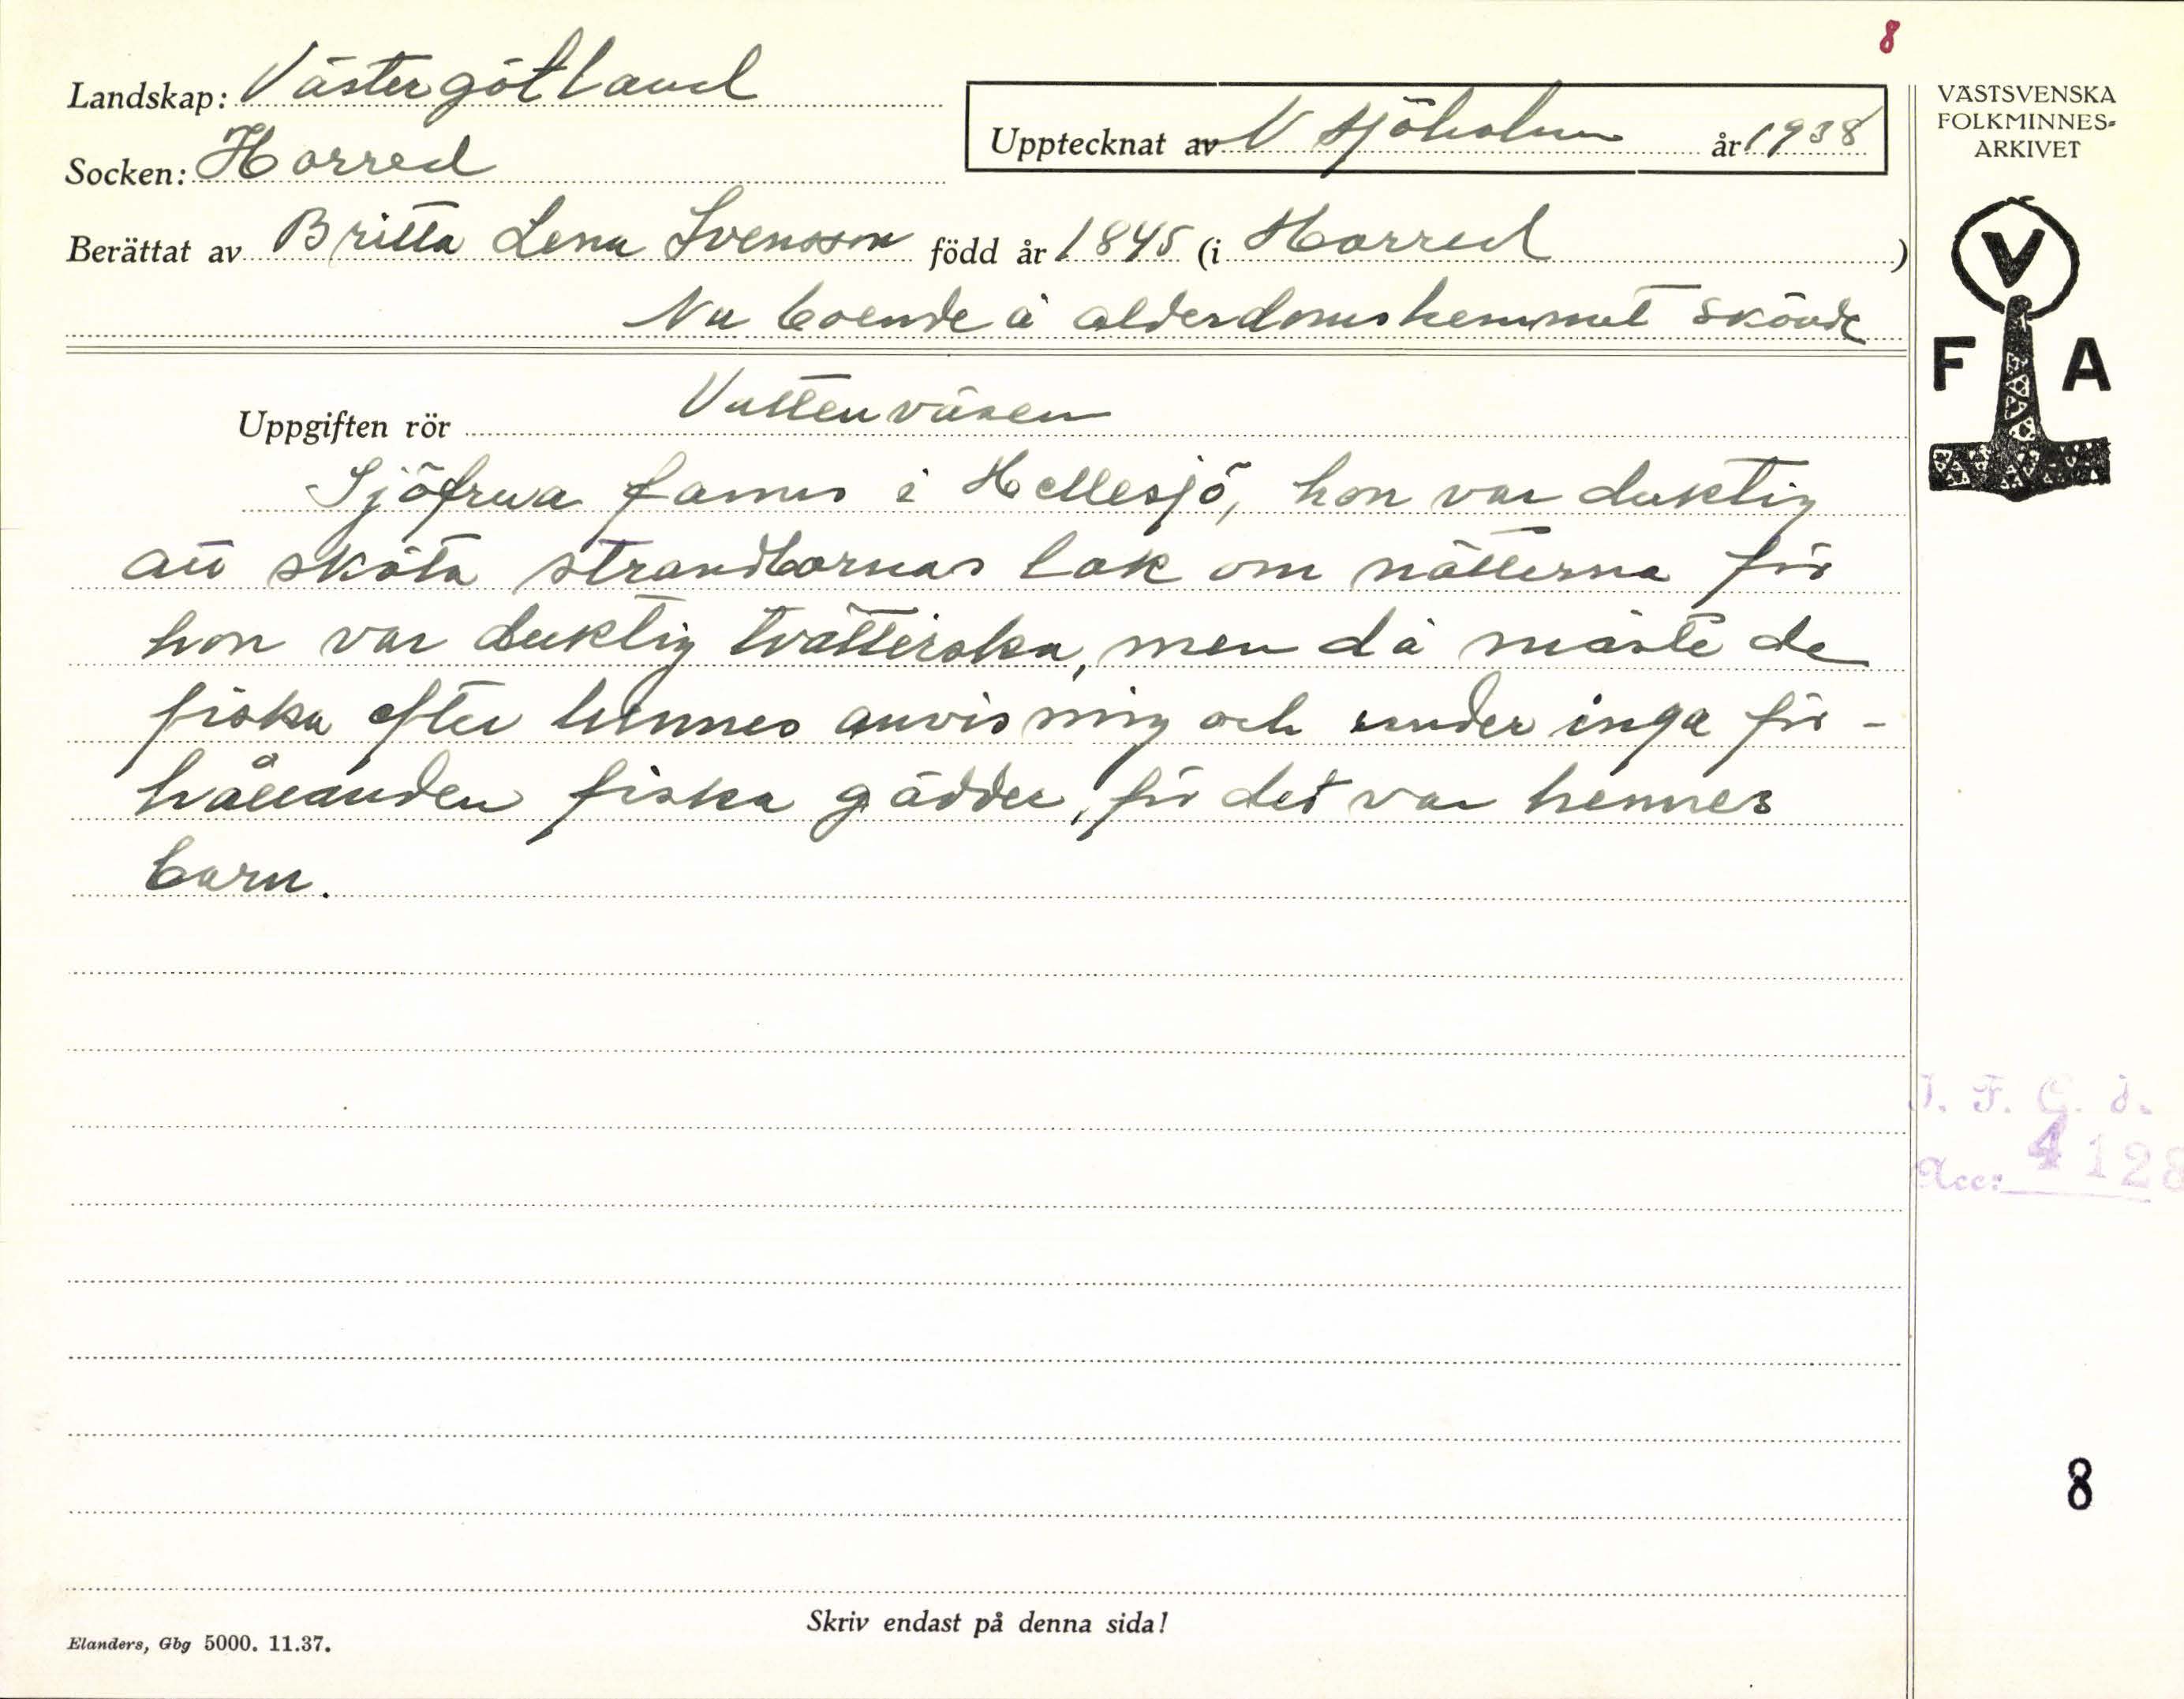 8
Landskap: Västergötland
Upptecknat av V Sjöholm år 1938
Socken: Horred
Berättat av Britta Lena Svensson född år 1845 (i Horred)
Nu boende å alderdomshemmet Skövde
Uppgiften rör Vattenväsen
Sjöfrua fanns i Hellesjö, hon var duktig
att sköta strandbornas lak om nätterna för
hon var duktig tvätterska, men då måste de
fiska efter hennes anvisning och under inga för-
hållanden fiska gäddor, för det var hennes
barn.
Skriv endast på denna sida!
Elanders, Gbg 5000. 11.37.
VÄSTSVENSKA
FOLKMINNES-
ARKIVET
V
F A
I. F. G. d.
Acc: 4128
8